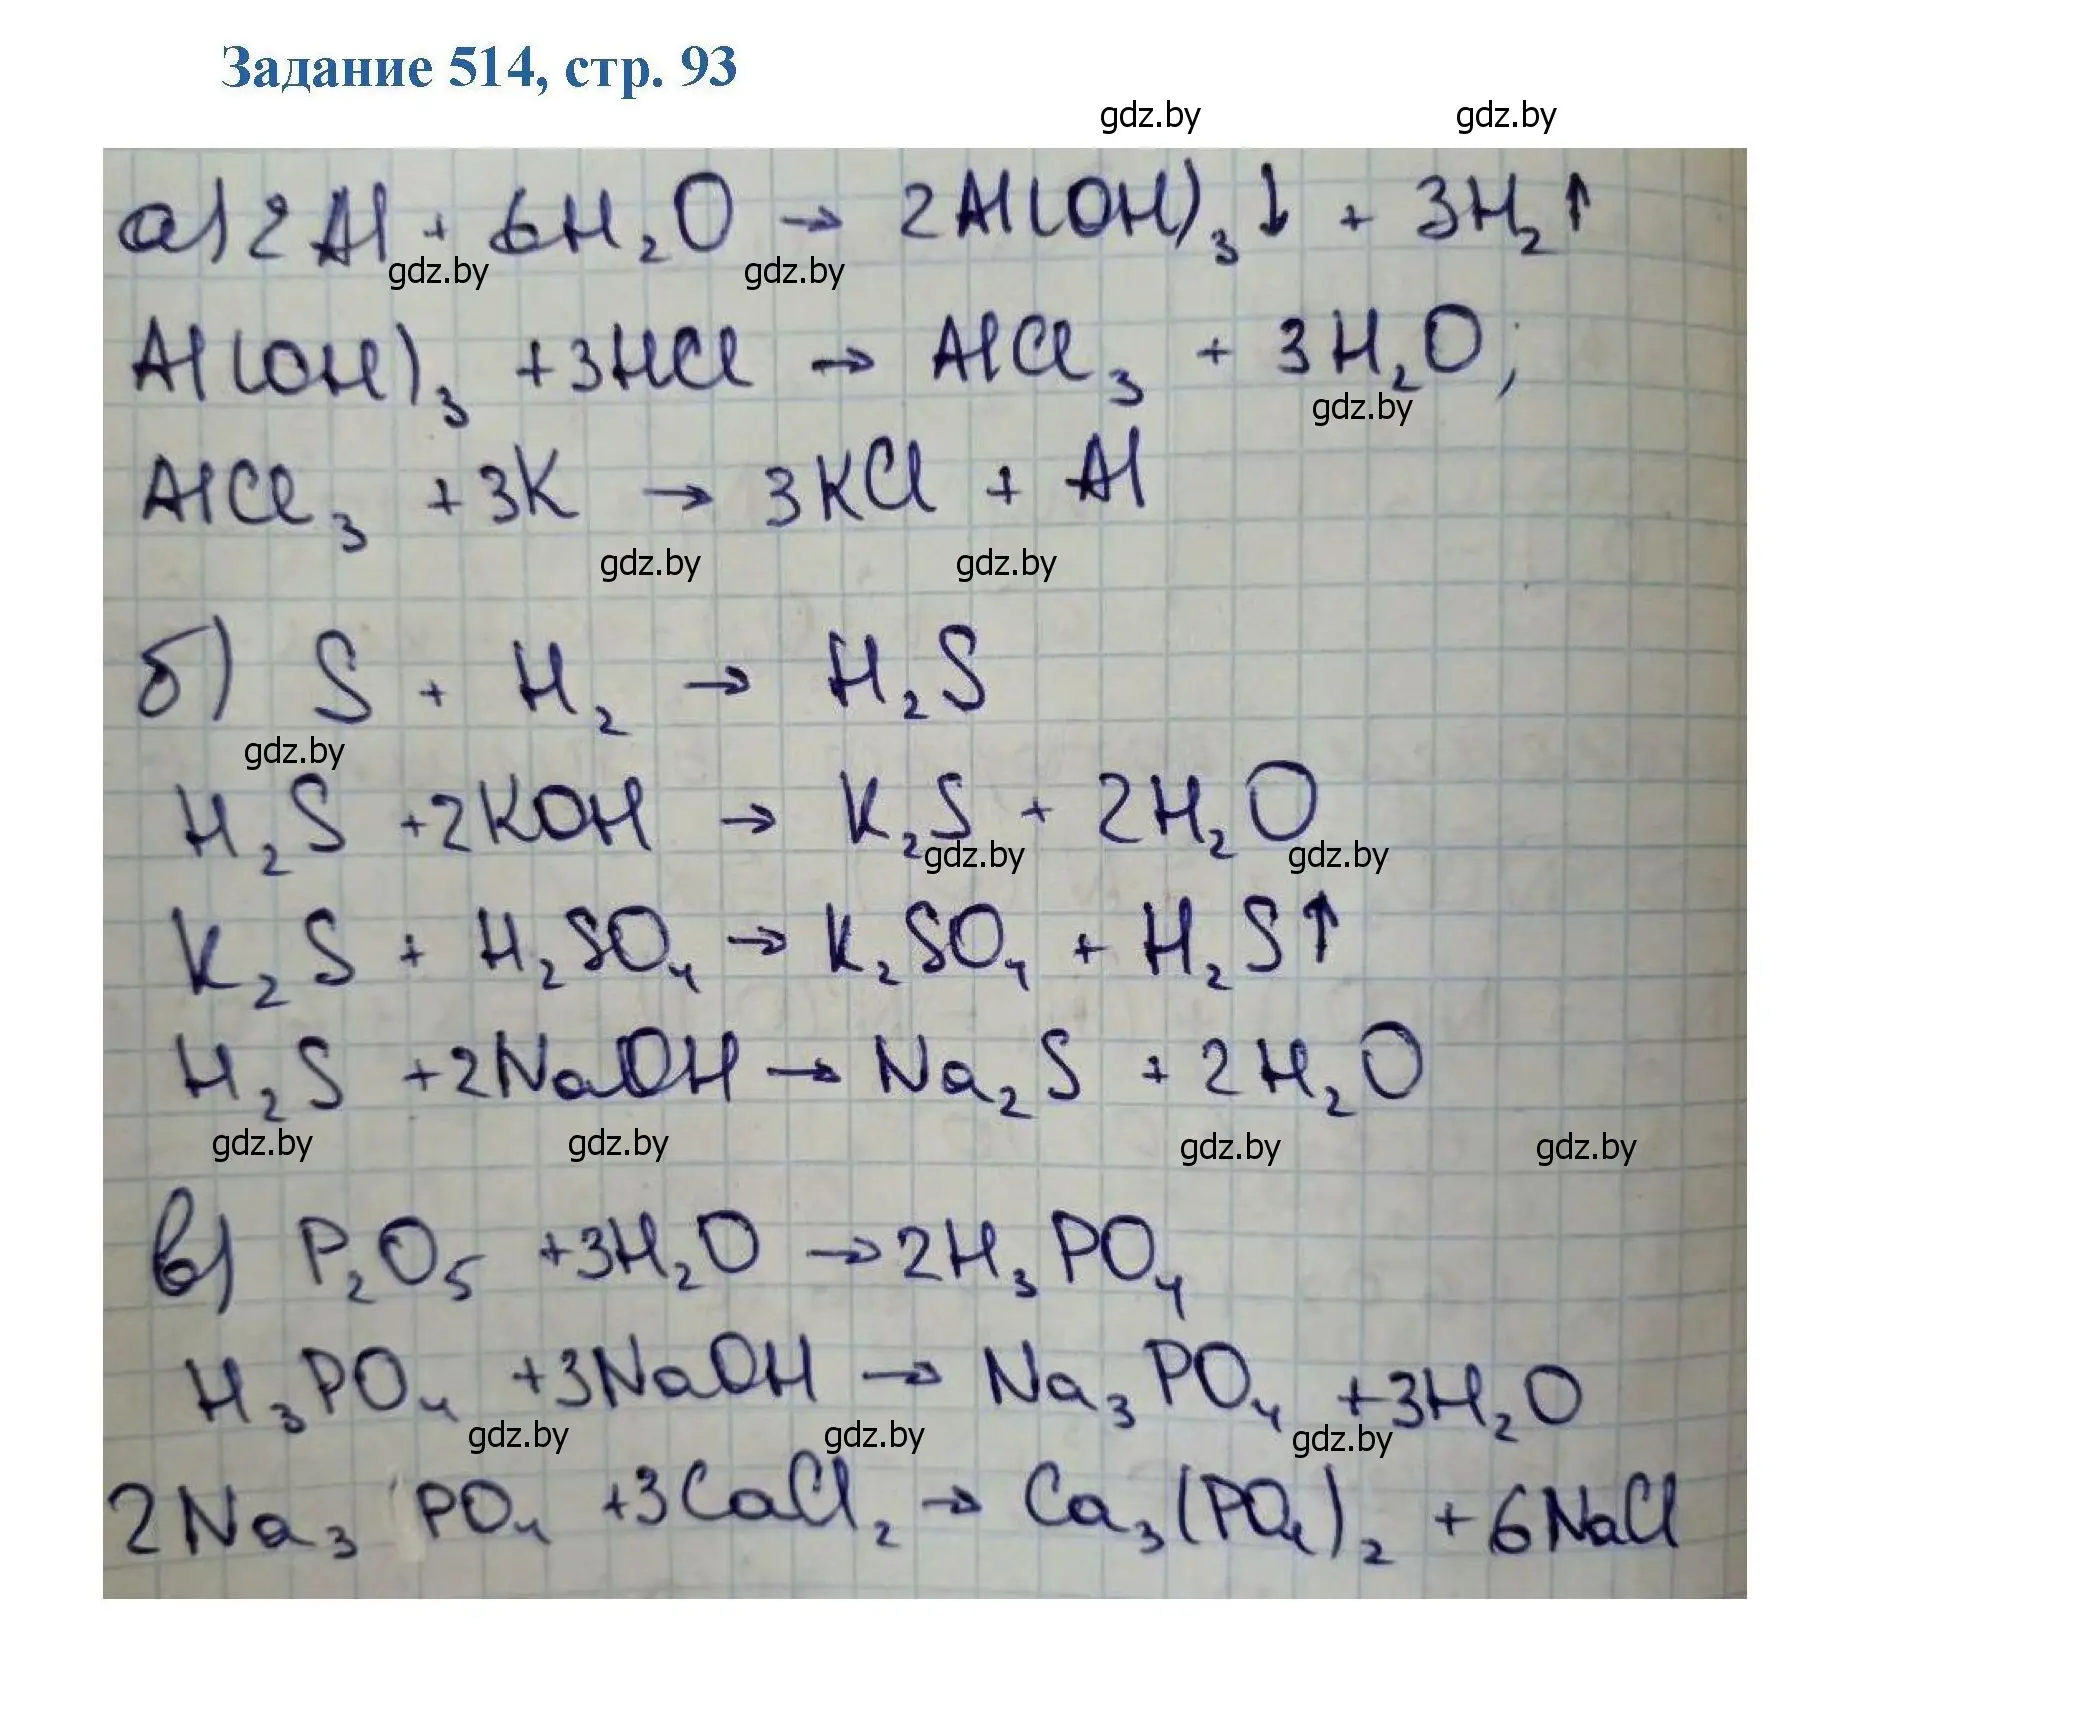 Задание 514, стр. 93
gdz.by gdz.by
а) 2Al + 6H₂O → 2Al(OH)₃↓ + 3H₂↑
gdz.by gdz.by
Al(OH)₃ + 3HCl → AlCl₃ + 3H₂O;
gdz.by
AlCl₃ + 3K → 3KCl + Al
gdz.by gdz.by
б) S + H₂ → H₂S
gdz.by
H₂S + 2KOH → K₂S + 2H₂O
gdz.by gdz.by
K₂S + H₂SO₄ → K₂SO₄ + H₂S↑
H₂S + 2NaOH → Na₂S + 2H₂O
gdz.by gdz.by gdz.by gdz.by
в) P₂O₅ + 3H₂O → 2H₃PO₄
H₃PO₄ + 3NaOH → Na₃PO₄ + 3H₂O
gdz.by gdz.by gdz.by
2Na₃PO₄ + 3CaCl₂ → Ca₃(PO₄)₂ + 6NaCl